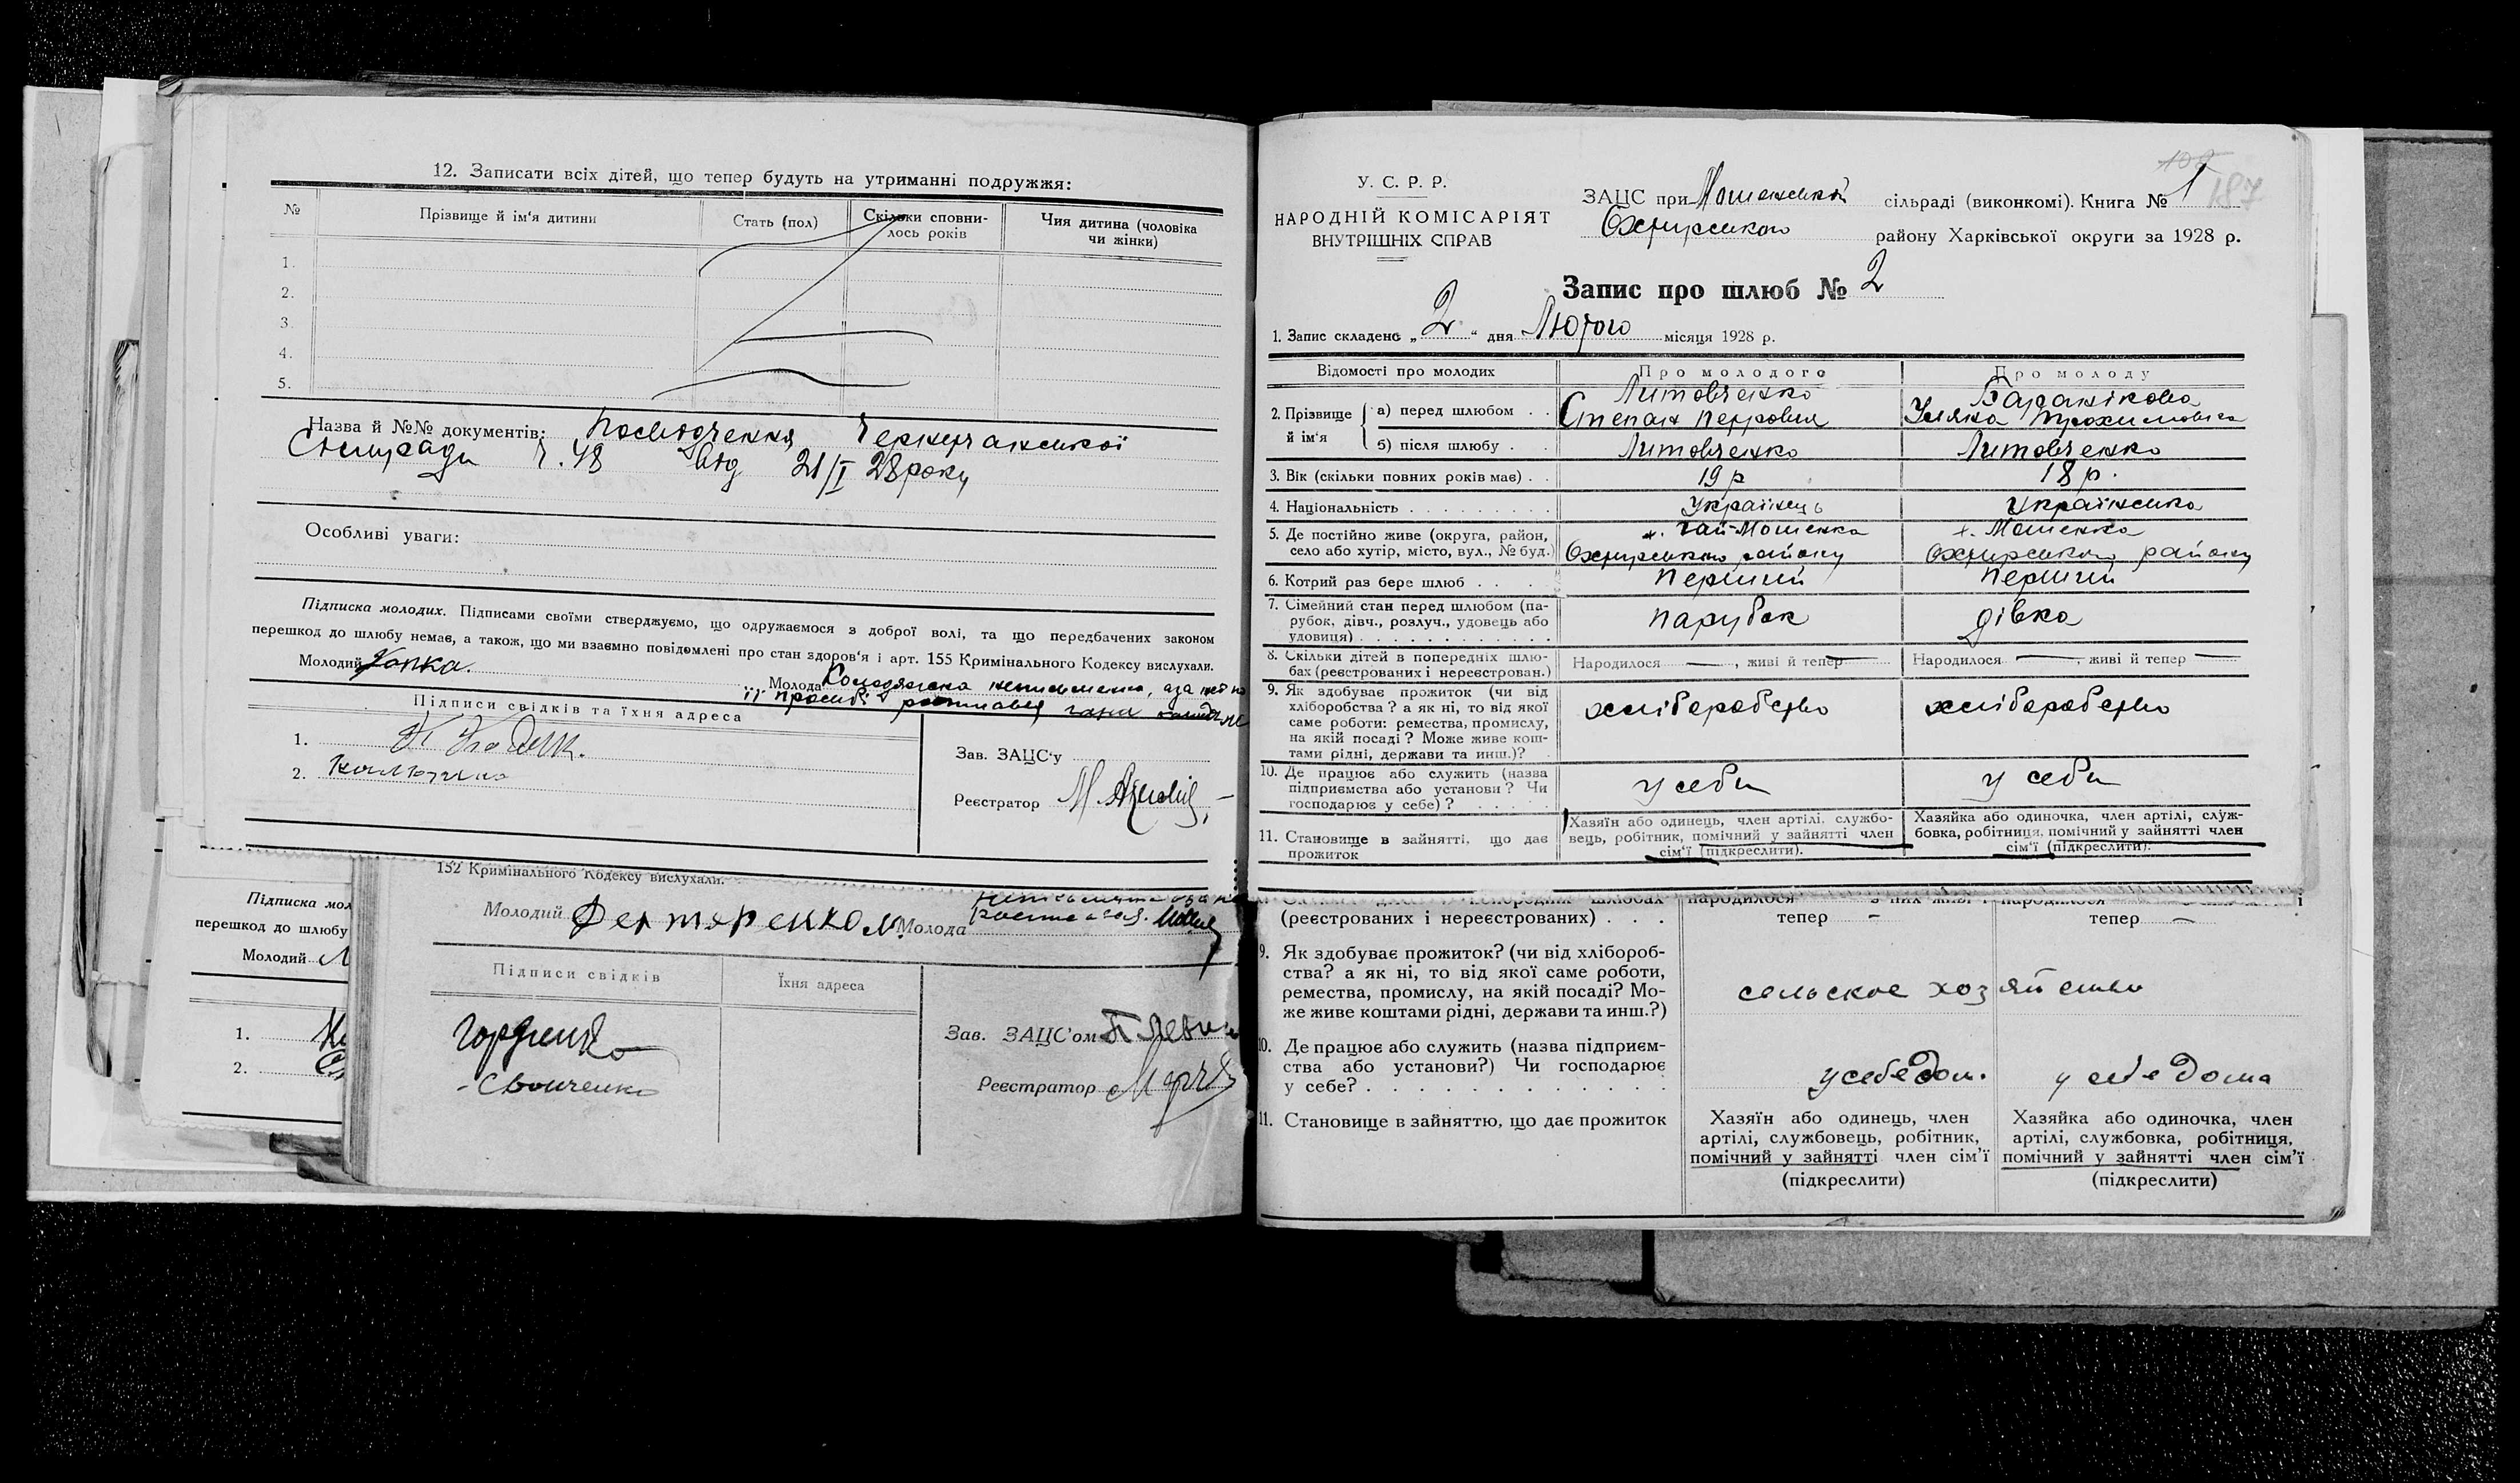 12. Записати всіх дітей, що тепер будуть на утриманні подружжя:
№ Прізвище й ім'я дитини Стать (пол) Скільки сповни-
лось років Чия дитина (чоловіка
чи жінки)
1.
2.
3.
4.
5.
Назва й №№ документів: Посвідчення
Сільради ч. 48 від 21/I 28 року
Особливі уваги:
Підписка молодих. Підписами своїми стверджуємо, що одружаємося з доброї волі, та що передбачених законом
перешкод до шлюбу немає, а також, що ми взаємно повідомлені про стан здоров'я і арт. 155 Кримінального Кодексу вислухали.
Молодий
Молода неписьменна, а за неї на
її прозьбі
Підписи свідків та їхня адреса
1.
2.
Зав. ЗАЦС'у
Реєстратор
152 Кримінального Кодексу вислухали.
Молодий Молода
Підписи свідків Їхня адреса
Зав. ЗАЦС'ом
Реєстратор
Підписка мол
перешкод до шлюбу
Молодий
1.
2.
У. С. Р. Р.
НАРОДНІЙ КОМІСАРІЯТ
ВНУТРІШНІХ СПРАВ
108
187
ЗАЦС при Мошенській сільраді (виконкомі). Книга № 1
Охтирського району Харківської округи за 1928 р.
Запис про шлюб № 2
1. Запис складено „ 2 " дня Лютого місяця 1928 р.
Відомості про молодих Про молодого Про молоду
2. Прізвище й ім'я а) перед шлюбом Литовченко Степан Петрович Баранікова Уляна Трохимовна
б) після шлюбу Литовченко Литовченко
3. Вік (скільки повних років має) 19 р 18 р.
4. Національність Українець Українка
5. Де постійно живе (округа, район, х. Гай-Мошенка х. Мошенка
село або хутір, місто, вул., № буд.) Охтирського району Охтирського району
6. Котрий раз бере шлюб перший перший
7. Сімейний стан перед шлюбом (па-
рубок, дівч., розлуч., удовець або
удовиця) парубок дівка
8. Скільки дітей в попередніх шлю-
бах (реєстрованих і нереєстрован.) Народилося —, живі й тепер — Народилося —, живі й тепер —
9. Як здобуває прожиток (чи від
хліборобства? а як ні, то від якої
саме роботи: ремества, промислу,
на якій посаді? Може живе кош-
тами рідні, держави та инш.)? хліборобство хліборобство
10. Де працює або служить (назва
підприємства або установи? Чи
господарює у себе)? у себи у себи
11. Становище в зайнятті, що дає
прожиток
Хазяїн або одинець, член артілі, службо-
вець, робітник, помічний у зайнятті член
сім'ї (підкреслити).
Хазяйка або одиночка, член артілі, служ-
бовка, робітниця, помічний у зайнятті член
сім'ї (підкреслити).
(реєстрованих і нереєстрованих) . . . тепер – тепер —
9. Як здобуває прожиток? (чи від хлібороб-
ства? а як ні, то від якої саме роботи,
ремества, промислу, на якій посаді? Мо-
же живе коштами рідні, держави та инш.?)
сельское хозяйство
10. Де працює або служить (назва підприєм-
ства або установи?) Чи господарює
у себе? у себе дом. у себе дома
11. Становище в зайняттю, що дає прожиток
Хазяїн або одинець, член
артілі, службовець, робітник,
помічний у зайнятті член сім'ї
(підкреслити)
Хазяйка або одиночка, член
артілі, службовка, робітниця,
помічний у зайнятті член сім'ї
(підкреслити)